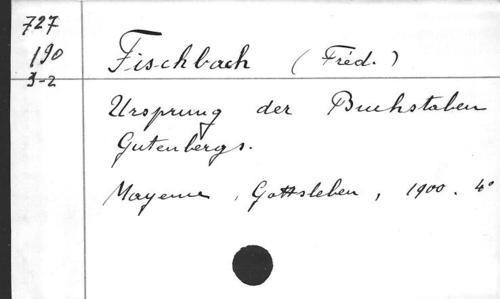 727
190
3-2
Fischbach (Fréd.)
Ursprung der Buchstaben
Gutenbergs.
Mayence, Gottsleben, 1900. 4°